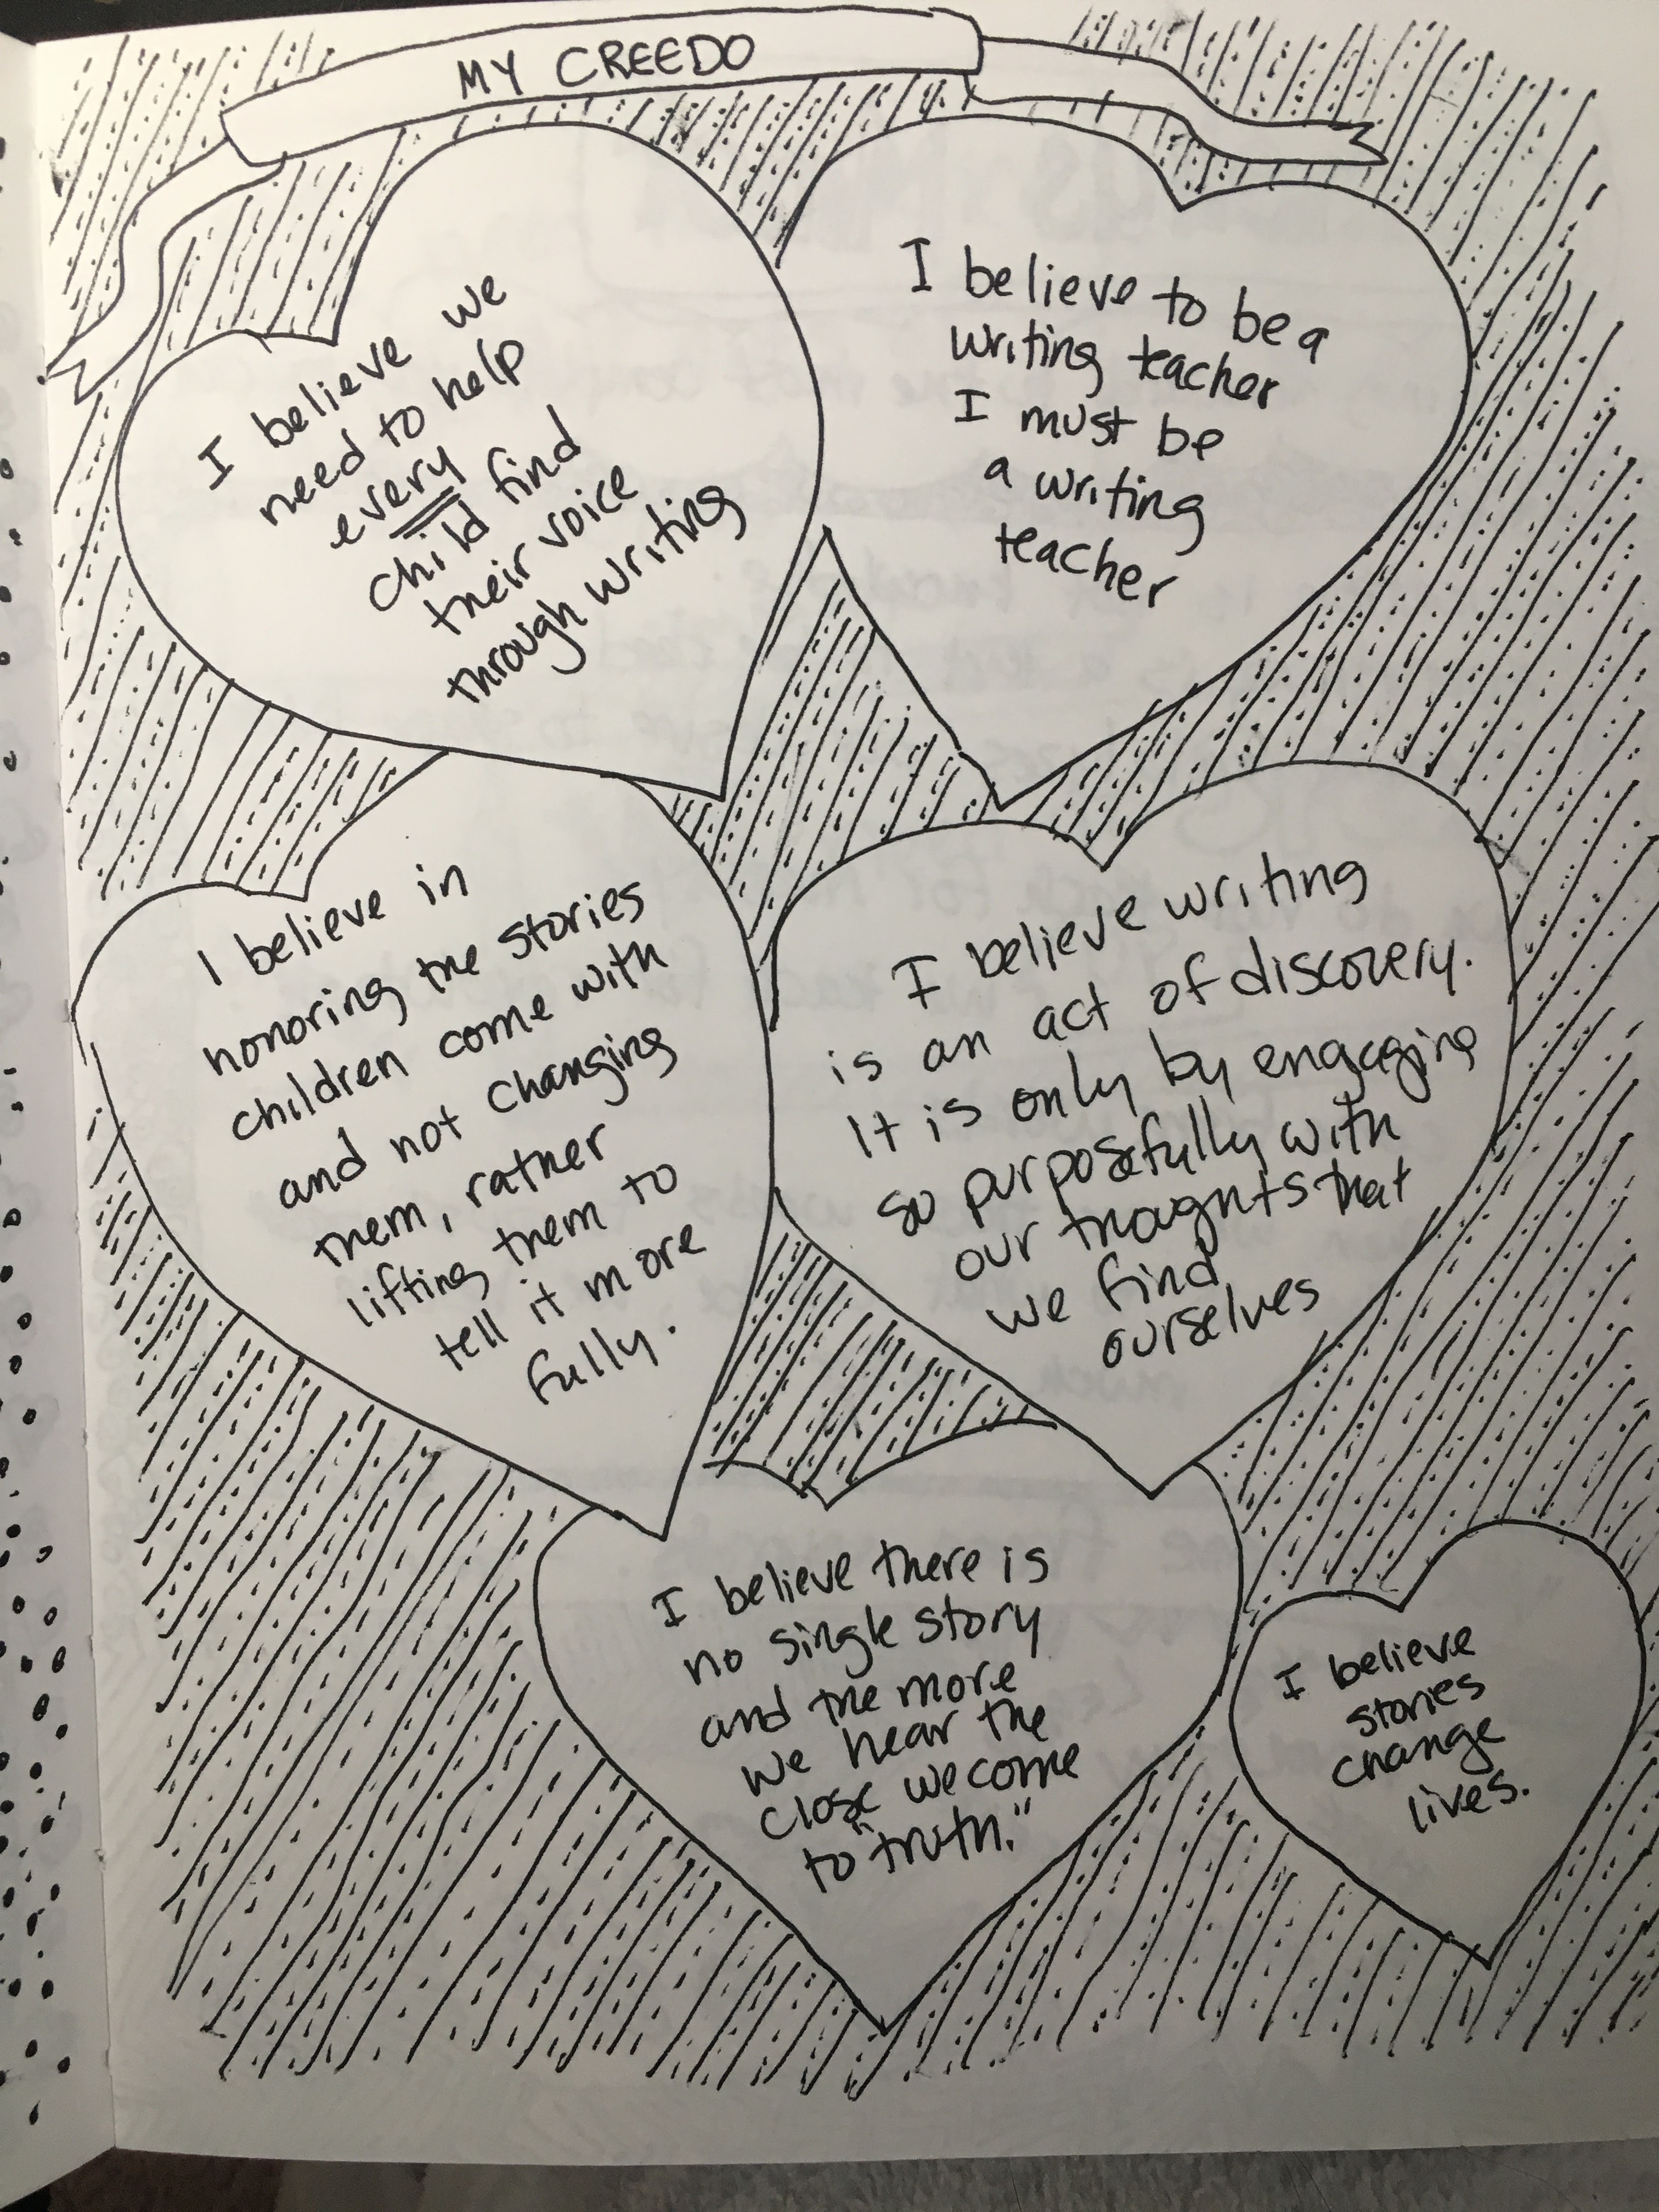 MY CREEDO
I believe we
need to help
every
child find
their voice
through writing
I believe to be a
writing teacher
I must be
a writing
teacher
I believe in
honoring the stories
children come with
and not changing
them, rather
lifting them to
tell it more
fully.
I believe writing
is an act of discovery.
It is only by engaging
so purposefully with
our thoaghts that
we find
ourselves
I believe there is
no single story
and the more
we hear the
close we come
to "truth."
I believe
stories
change
lives.